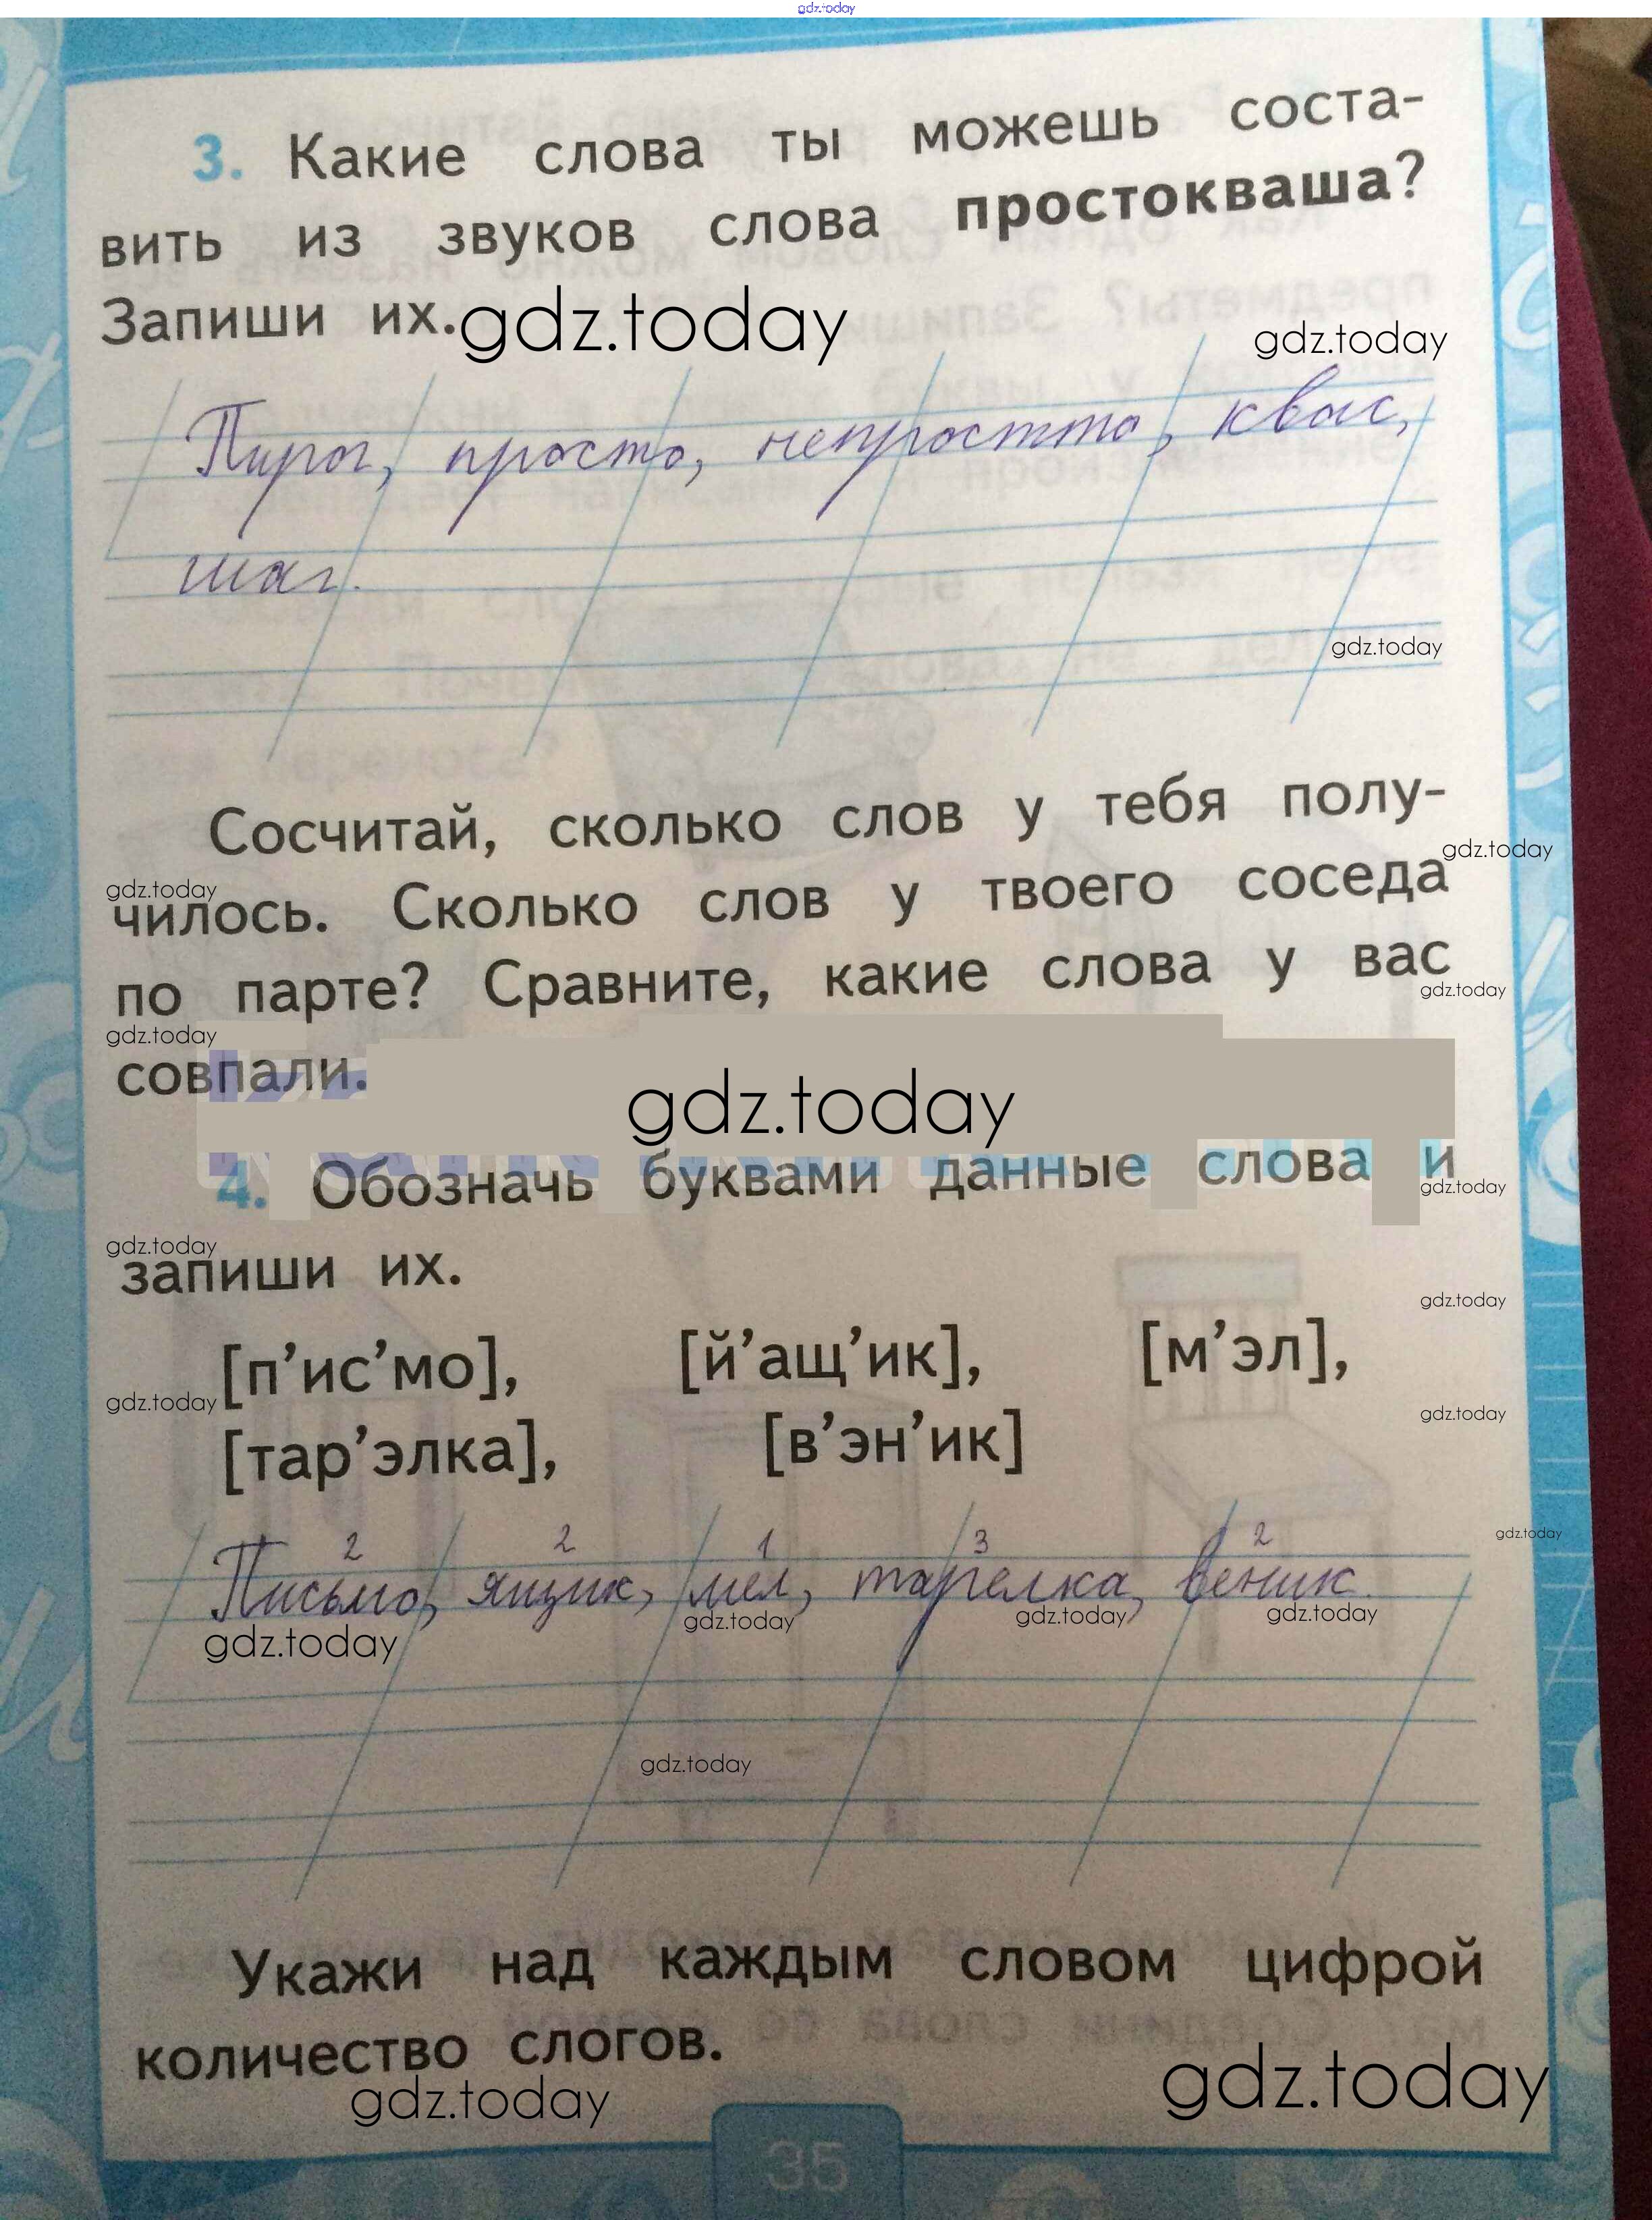 gdz.today
3. Какие слова ты можешь соста-
вить из звуков слова простокваша?
Запиши их. gdz.today gdz.today
Пирог, просто, непростто, квас,
шаг.
gdz.today
Сосчитай, сколько слов у тебя полу-
gdz.today gdz.today
чилось. Сколько слов у твоего соседа
по парте? Сравните, какие слова у вас
gdz.today gdz.today
совпали.
gdz.today
4. Обозначь буквами данные слова и
gdz.today
gdz.today
запиши их.
gdz.today
[п’ис’мо], [й’ащ’ик], [м’эл],
gdz.today gdz.today
[тар’элка], [в’эн’ик]
gdz.today
2 2 1 3 2
Письмо, ящик, мел, тарелка, веник.
gdz.today gdz.today gdz.today gdz.today
gdz.today
Укажи над каждым словом цифрой
количество слогов.
gdz.today gdz.today
35